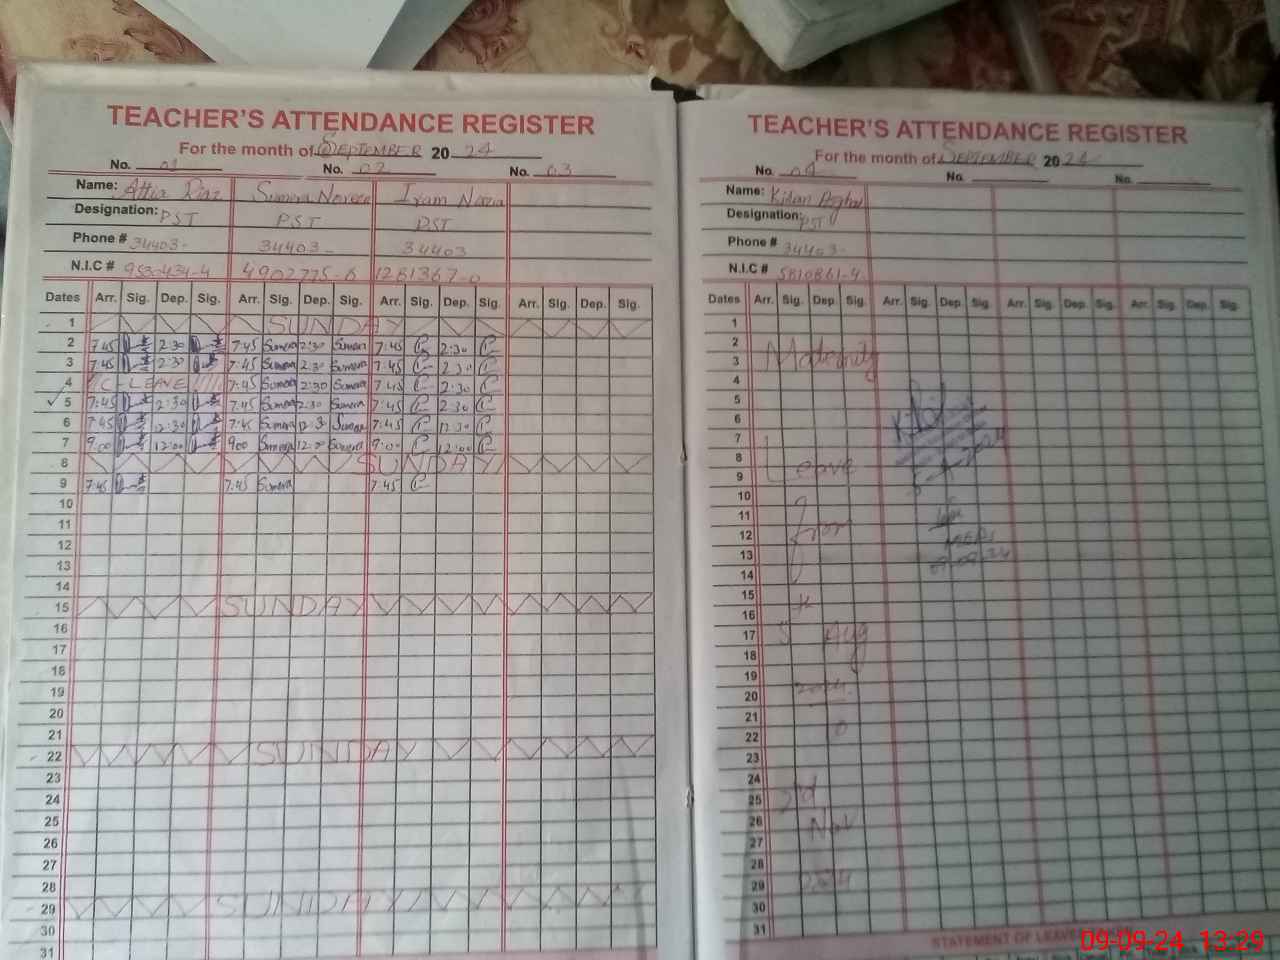 TEACHER'S ATTENDANCE REGISTER
For the month of SEPTEMBER 20 24
No. 01 No. 02 No. 03
Name: Attia Riaz Sumera Iram
Designation: PST PST PST
Phone # 34403- 34403- 34403
N.I.C # 9530434-4 4902775-6 1261367-0
Dates Arr. Sig. Dep. Sig. Arr. Sig. Dep. Sig. Arr. Sig. Dep. Sig. Arr. Sig. Dep. Sig.
1 SUNDAY
2 7:45 2:30 7:45 Sumera 2:30 Sumera 7:45 2:30
3 7:45 2:30 7:45 Sumera 2:30 Sumera 7:45 2:30
4 C-LEAVE 7:45 Sumera 2:30 Sumera 7:45 2:30
5 7:45 2:30 7:45 Sumera 2:30 Sumera 7:45 2:30
6 7:45 12:30 7:45 Sumera 12:3 Sumera 7:45 12:30
7 9:00 12:00 9:00 Sumera 12:00 Sumera 9:00 12:00
8 SUNDAY
9 7:45 7:45 Sumera 7:45
10
11
12
13
14
15 SUNDAY
16
17
18
19
20
21
22 SUNDAY
23
24
25
26
27
28
29 SUNDAY
30
31
TEACHER'S ATTENDANCE REGISTER
For the month of SEPTEMBER 20 24
No. 04 No. No.
Name:
Designation: PST
Phone # 34403-
N.I.C # 5810861-4
Dates Arr. Sig. Dep. Sig. Arr. Sig. Dep. Sig. Arr. Sig. Dep. Sig. Arr. Sig. Dep. Sig.
1
2
3 Maternity
4
5
6
7
8
9 Leave
10
11
12 from
13 09-09-24
14
15
16 th
17 5 Aug
18
19
20 2024
21
22
23
24
25
26 Nov
27
28
29 2024
30
31
STATEMENT OF LEAVE
09-09-24 13:29